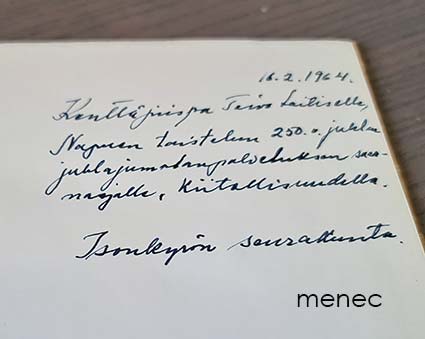 16.2.1964.
Kenttäpiispa Toivo Laitiselle,
Napuen taistelun 250.v. juhlan
juhlajumalanpalveluksen saar-
naajalle, Kiitollisuudella.
Isonkyrön seurakunta.
menec